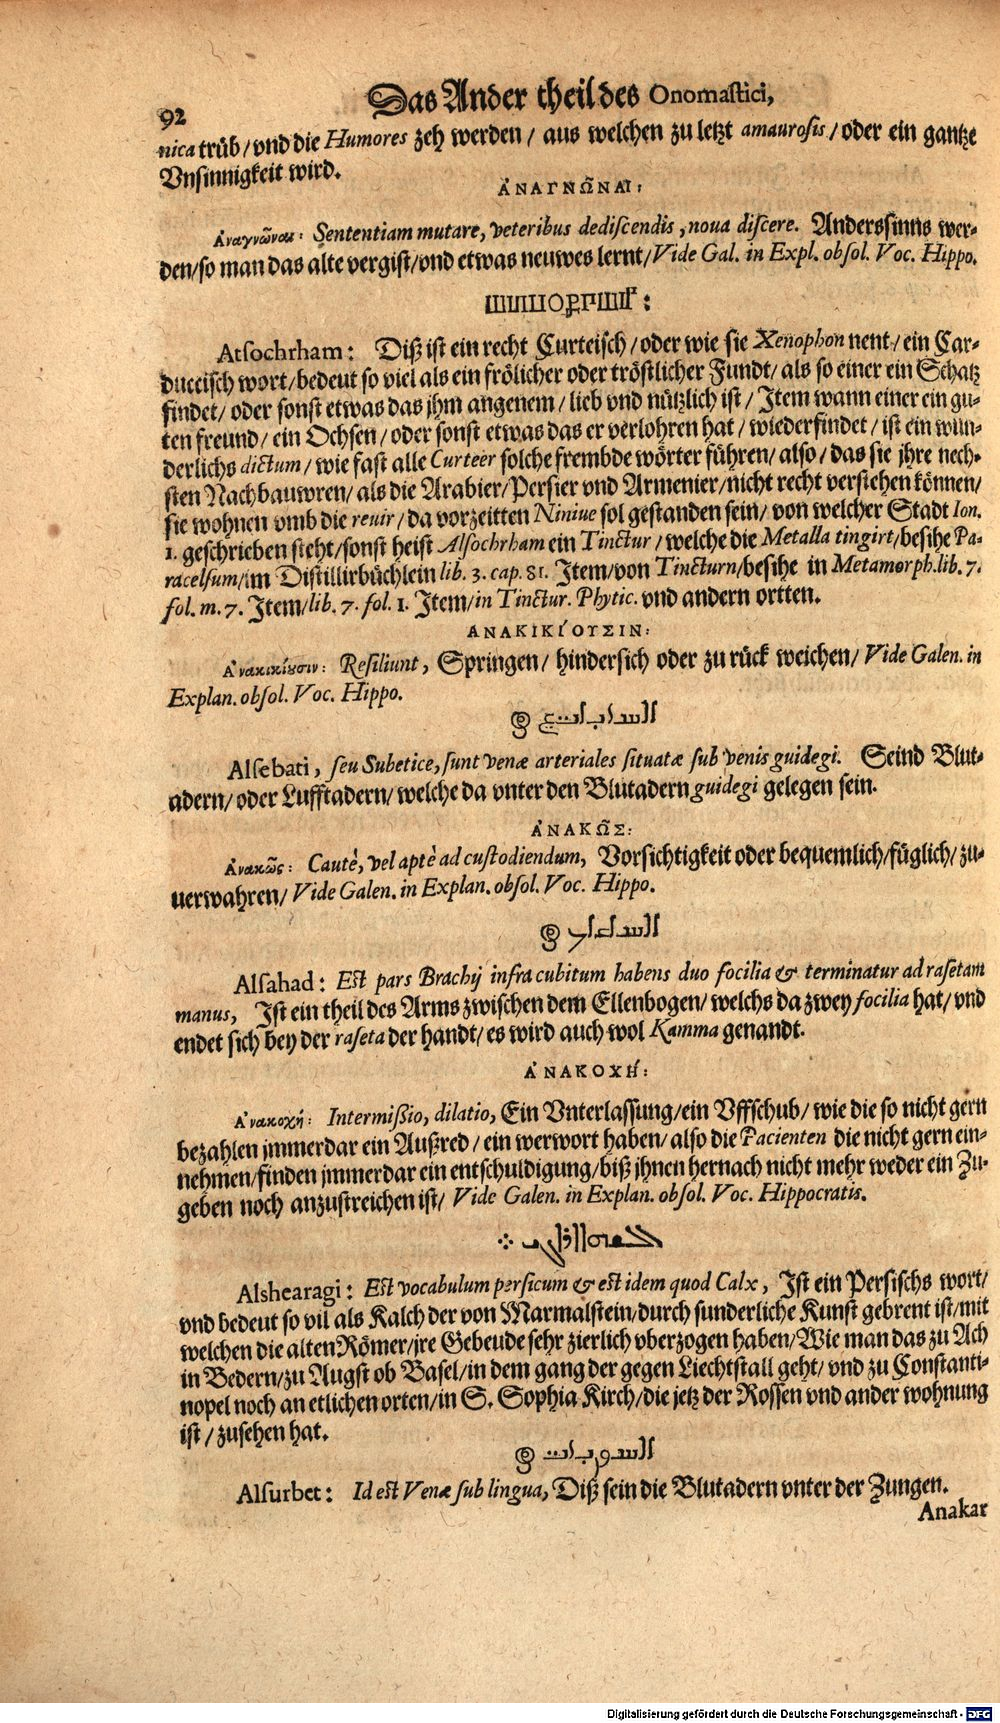 92
Das Ander theil des Onomastici,
nica trüb/ vnd die Humores zeh werden/ aus welchen zu letzt amaurosis/ oder ein gantze
Vnsinnigkeit wird.
ἈΝΑΓΝΩ͂ΝΑΙ:
Ἀναγνῶναι: Sententiam mutare, veteribus dediscendis, noua discere. Anderssinns wer-
den/ so man das alte vergist/ vnd etwas neuwes lernt/ Vide Gal. in Expl. obsol. Voc. Hippo.
Atsochrham: Diß ist ein recht Curteisch/ oder wie sie Xenophon nent/ ein Car-
duceisch wort/ bedeut so viel als ein frölicher oder tröstlicher Fundt/ als so einer ein Schatz
findet/ oder sonst etwas das jhm angenem/ lieb vnd nützlich ist/ Item wann einer ein gu-
ten freund/ ein Ochsen/ oder sonst etwas das er verlohren hat/ wiederfindet/ ist ein wun-
derlichs dictum/ wie fast alle Curteer solche frembde wörter führen/ also/ das sie jhre nech-
sten Nachbauwren/ als die Arabier/ Persier vnd Armenier/ nicht recht verstehen können/
sie wohnen vmb die reuir/ da vorzeitten Niniue sol gestanden sein/ von welcher Stadt Ion.
1. geschrieben steht/ sonst heist Alsochrham ein Tinctur/ welche die Metalla tingirt/ besihe Pa-
racelsum/ im Distillirbüchlein lib. 3. cap. 81. Item/ von Tincturn/ besihe in Metamorph. lib. 7.
fol. m. 7. Item/ lib. 7. fol. 1. Item/ in Tinctur. Phytic. vnd andern ortten.
ΑΝΑΚΙΚΙΌΥΣΙΝ:
Ἀνακικίουσιν: Resiliunt, Springen/ hindersich oder zu rück weichen/ Vide Galen. in
Explan. obsol. Voc. Hippo.
Alsebati, seu Subetice, sunt venæ arteriales situatæ sub venis guidegi. Seind Blut-
adern/ oder Lufftadern/ welche da vnter den Blutadern guidegi gelegen sein.
ἈΝΑΚΩ͂Σ:
Ἀνακῶς: Cautè, vel aptè ad custodiendum, Vorsichtigkeit oder bequemlich/ füglich/ zu-
uerwahren/ Vide Galen. in Explan. obsol. Voc. Hippo.
Alsahad: Est pars Brachij infra cubitum habens duo focilia & terminatur ad rasetam
manus, Ist ein theil des Arms zwischen dem Ellenbogen/ welchs da zwey focilia hat/ vnd
endet sich bey der raseta der handt/ es wird auch wol Kamma genandt.
ἈΝΑΚΟΧΉ:
Ἀνακοχή: Intermißio, dilatio, Ein Vnterlassung/ ein Vffschub/ wie die so nicht gern
bezahlen jmmerdar ein Außred/ ein werwort haben/ also die Pacienten die nicht gern ein-
nehmen/ finden jmmerdar ein entschuldigung/ biß jhnen hernach nicht mehr weder ein Zu-
geben noch anzustreichen ist/ Vide Galen. in Explan. obsol. Voc. Hippocratis.
Alshearagi: Est vocabulum persicum & est idem quod Calx, Ist ein Persischs wort/
vnd bedeut so vil als Kalch der von Marmalstein/ durch sunderliche Kunst gebrent ist/ mit
welchen die alten Römer/ jre Gebeude sehr zierlich vberzogen haben/ Wie man das zu Ach
in Bedern/ zu Augst ob Basel/ in dem gang der gegen Liechtstall geht/ vnd zu Constanti-
nopel noch an etlichen orten/ in S. Sophia Kirch/ die jetz der Rossen vnd ander wohnung
ist/ zusehen hat.
Alsurbet: Id est Venæ sub lingua, Diß sein die Blutadern vnter der Zungen.
Anakar
Digitalisierung gefördert durch die Deutsche Forschungsgemeinschaft - DFG